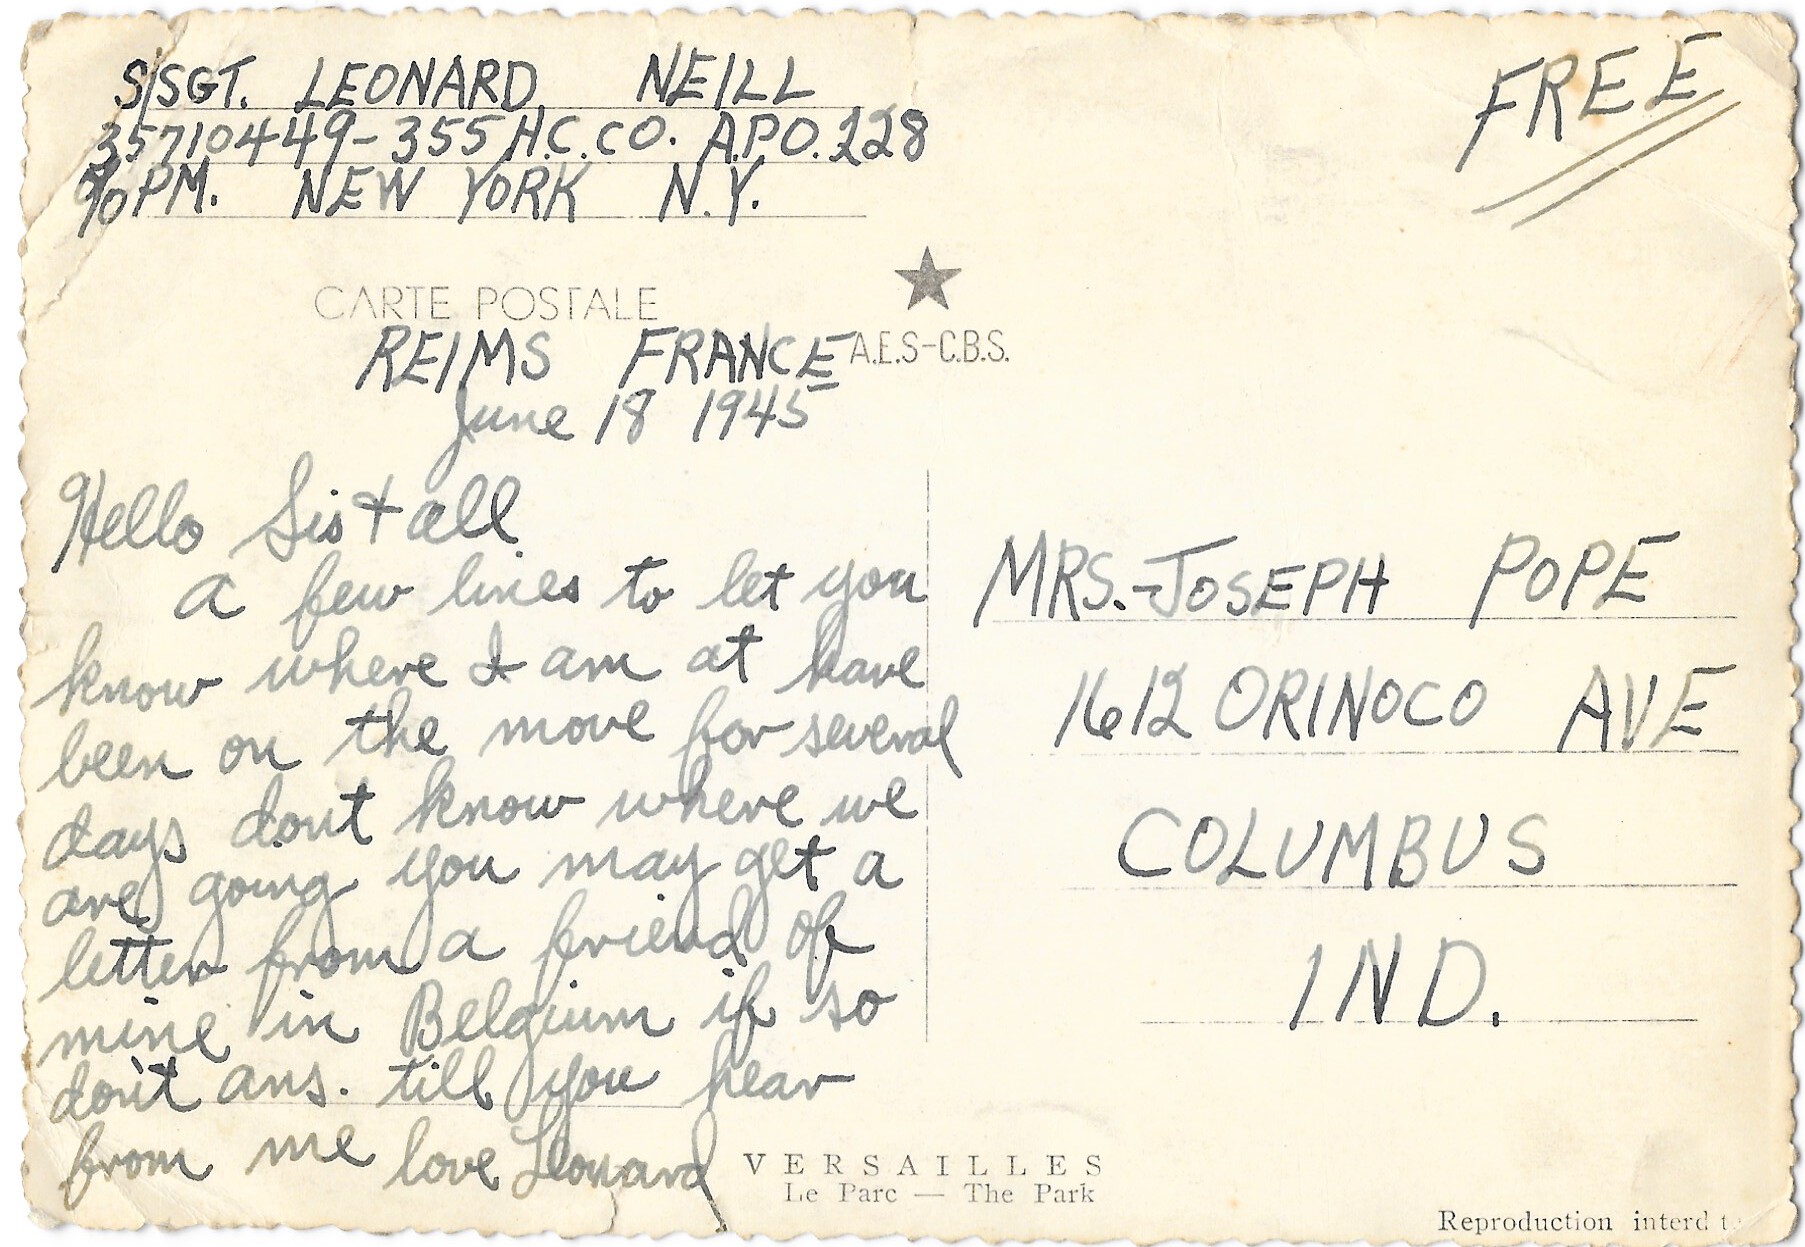 S/SGT. LEONARD NEILL
35710449-355 H.C.CO. A.P.O. 228
%PM. NEW YORK N.Y.
FREE
CARTE POSTALE
A.E.S-C.B.S.
REIMS FRANCE
June 18 1945
Hello Sis + all
a few lines to let you
know where I am at have
been on the move for several
days dont know where we
are going you may get a
letter from a friend of
mine in Belgium if so
don't ans. till you hear
from me love Leonard
MRS.-JOSEPH POPE
1612 ORINOCO AVE
COLUMBUS
IND.
VERSAILLES
Le Parc — The Park
Reproduction interd